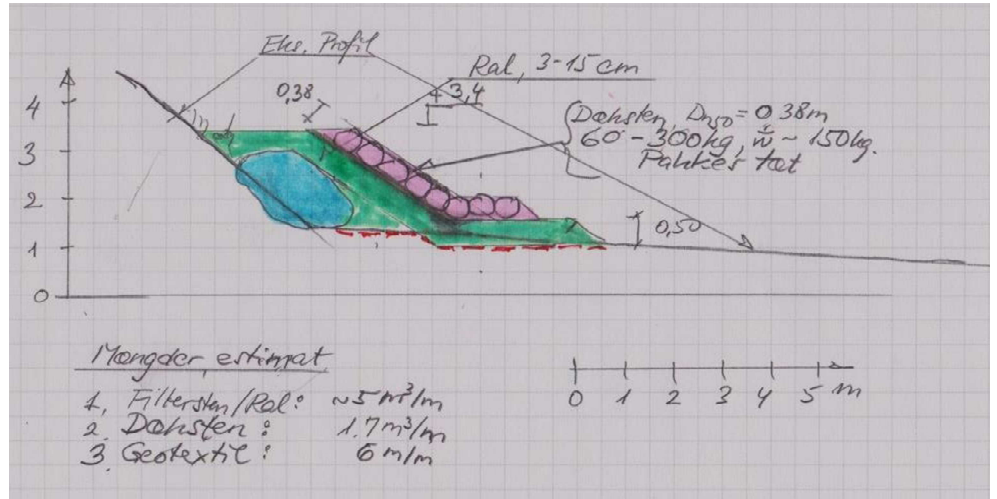 Eks. Profil
Ral, 3-15 cm
0,38
+3,4
Dæksten, Dn50 = 0,38m
60 - 300kg, w ~ 150kg.
Pakkes tæt
4
3
2
1
0
0,50
Mængder, estimat
1. Filtersten/Ral: ~5 m³/m
2. Dæksten: 1.7 m³/m
3. Geotextil: 6 m/m
0 1 2 3 4 5 m